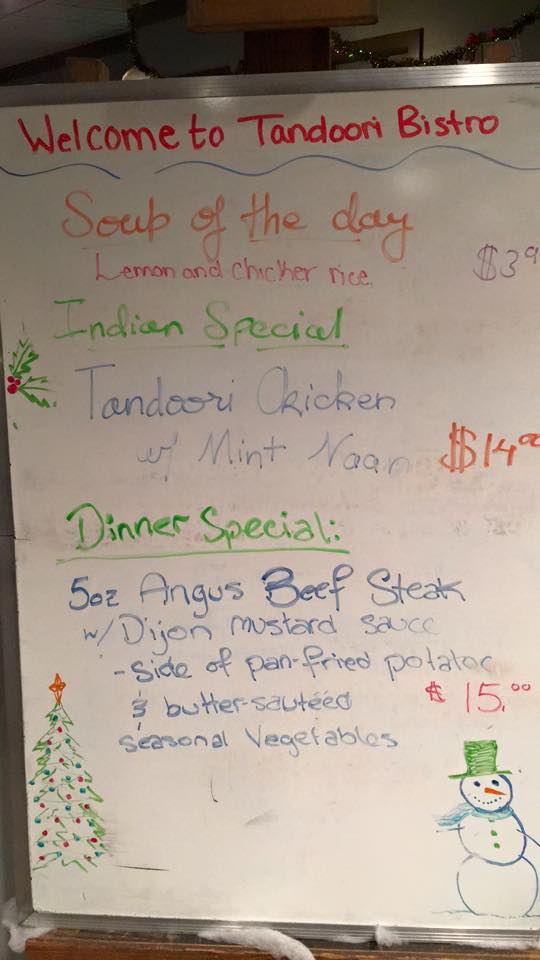 Welcome to Tandoori Bistro
Soup of the day
Lemon and chicken rice.
$3.9
Indian Special
Tandoori Chicken
w/ Mint Naan $14.00
Dinner Special:
5oz Angus Beef Steak
w/ Dijon mustard sauce
- side of pan-fried potatoe
& butter-sautéed $15.00
seasonal Vegetables